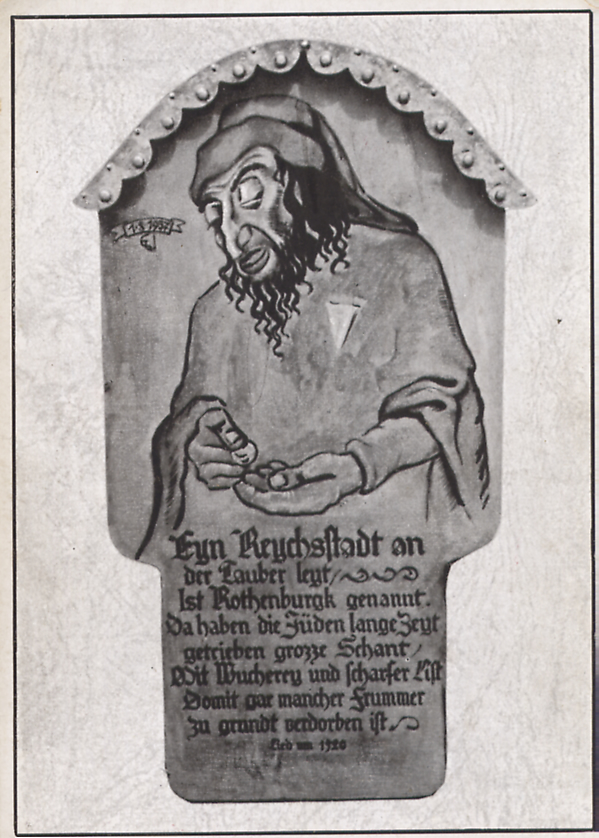 1·8·1937
Eyn Reychsstadt an
der Tauber leyt,
Ist Rothenburgk genannt.
Da haben die Jüden lange Zeyt
getrieben grozze Schant,
Mit Wucherey und scharfer List
Domit gar mancher Frummer
zu grundt verdorben ist.
Lied um 1520